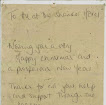 To all at the
Wishing you a very
Happy Christmas and
prosperous New Year
Thanks for all your help
and support through the